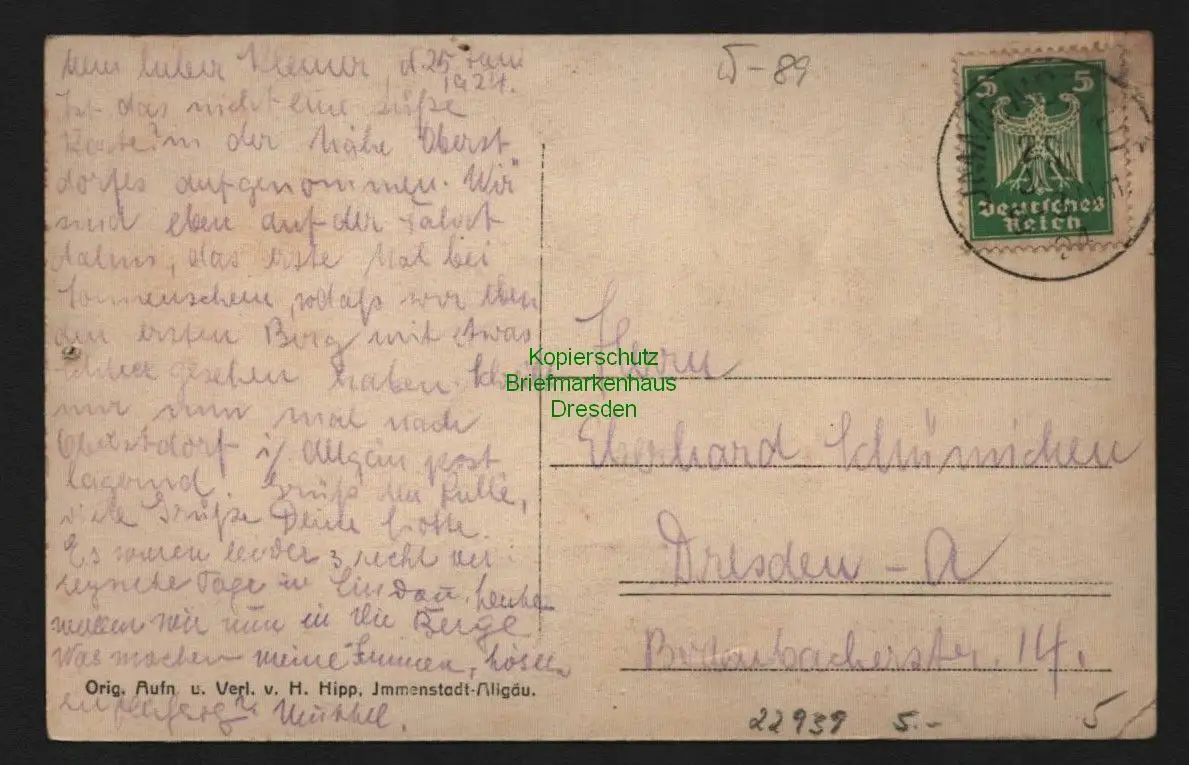 Mein lieber d. 25. Juni
1927.
Ist das nicht eine süße
Karte? in der Nähe Oberst
dorfes aufgenommen. Wir
sind eben auf der Fahrt
dahin, das erste Mal bei
Sonnenschein, sodaß wir eben
den ersten Berg mit etwas
Schnee gesehen haben. Schreib
mir nun mal nach
Oberstdorf i/ Allgäu post
lagernd. Grüß
viele Grüße Deine Lotte.
Es waren leider 3 recht ver
regnete Tage in Lindau, heute
wollen wir nun in die Berge
Was machen meine
Orig. Aufn. u. Verl. v. H. Hipp, Jmmenstadt-Allgäu.
W-89
5 5
Deutsches
Reich
Herrn
Eberhard Schürnichen
Dresden - A
Bodenbacherstr. 14.
22939 5.- 5
Kopierschutz
Briefmarkenhaus
Dresden